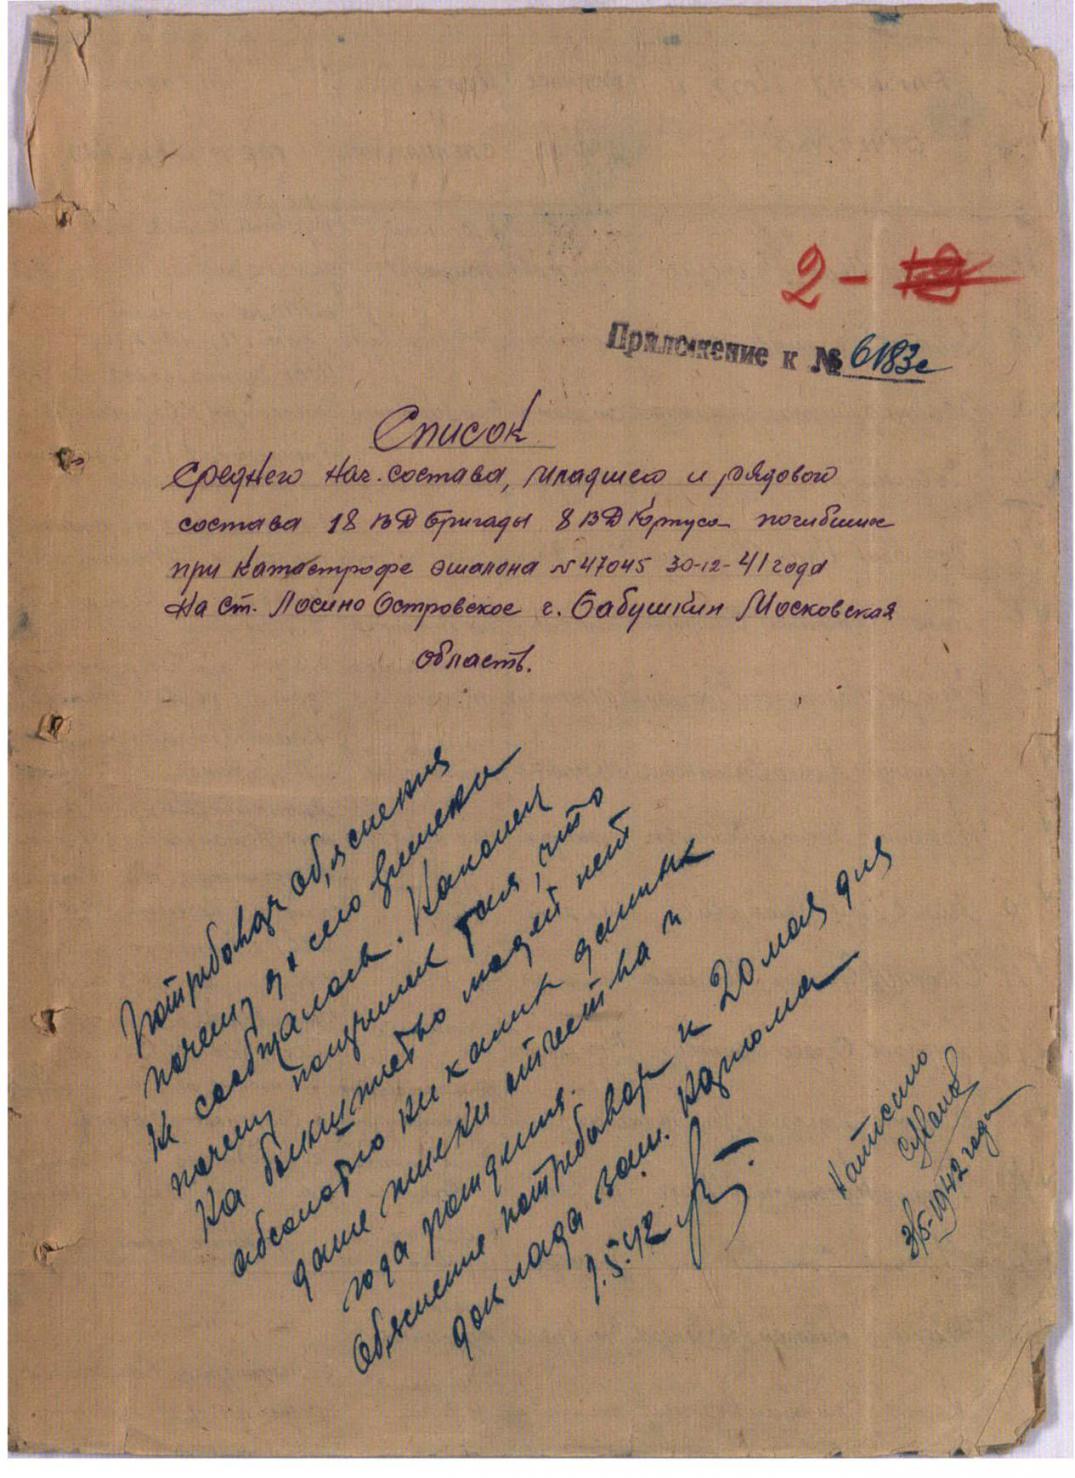 2 - 19
Приложение к № 6183с
Список
Среднего нач. состава, младшего и рядового
состава 18 ВД бригады 8 ВД Корпуса погибших
при катастрофе эшалона №47045 30-12-41 года
На ст. Лосино Островское г. Бабушкин Московская
область.
Потребовать об,яснения
почему до сего времени
не сообщалось. Наконец
почему получилось так, что
на большинство людей нет
абсолютно никаких данных
даже имени отчества и
года рождения.
Об,яснение потребовать к 20 мая для
доклада зам. наркома
7.5.42
Написано
8/5-1942 года